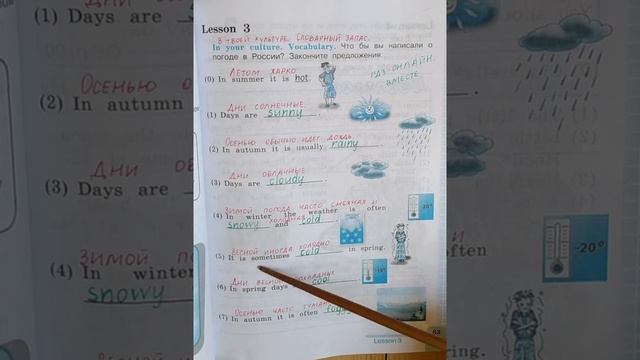 Lesson 3
В ТВОЕЙ КУЛЬТУРЕ. СЛОВАРНЫЙ ЗАПАС.
In your culture. Vocabulary. Что бы вы написали о
погоде в России? Закончите предложения.
ЛЕТОМ ЖАРКО
(0) In summer it is hot.
ГДЗ-ОНЛАЙН
ВМЕСТЕ
ДНИ СОЛНЕЧНЫЕ.
(1) Days are sunny.
ОСЕНЬЮ ОБЫЧНО ИДЕТ ДОЖДЬ.
(2) In autumn it is usually rainy
ДНИ ОБЛАЧНЫЕ.
(3) Days are cloudy.
ЗИМОЙ ПОГОДА ЧАСТО СНЕЖНАЯ И
(4) In winter the weather is often
ХОЛОДНАЯ
snowy and cold.
-20°
ВЕСНОЙ ИНОГДА ХОЛОДНО
(5) It is sometimes cold in spring.
ДНИ ВЕСНОЙ
(6) In spring days cool
ОСЕНЬЮ ЧАСТО
(7) In autumn it is often
63
Lesson 3
ОСЕНЬЮ О
(2) In autumn
ДНИ
(3) Days are
ЗИМОЙ П
(4) In winter
snowy
-20°